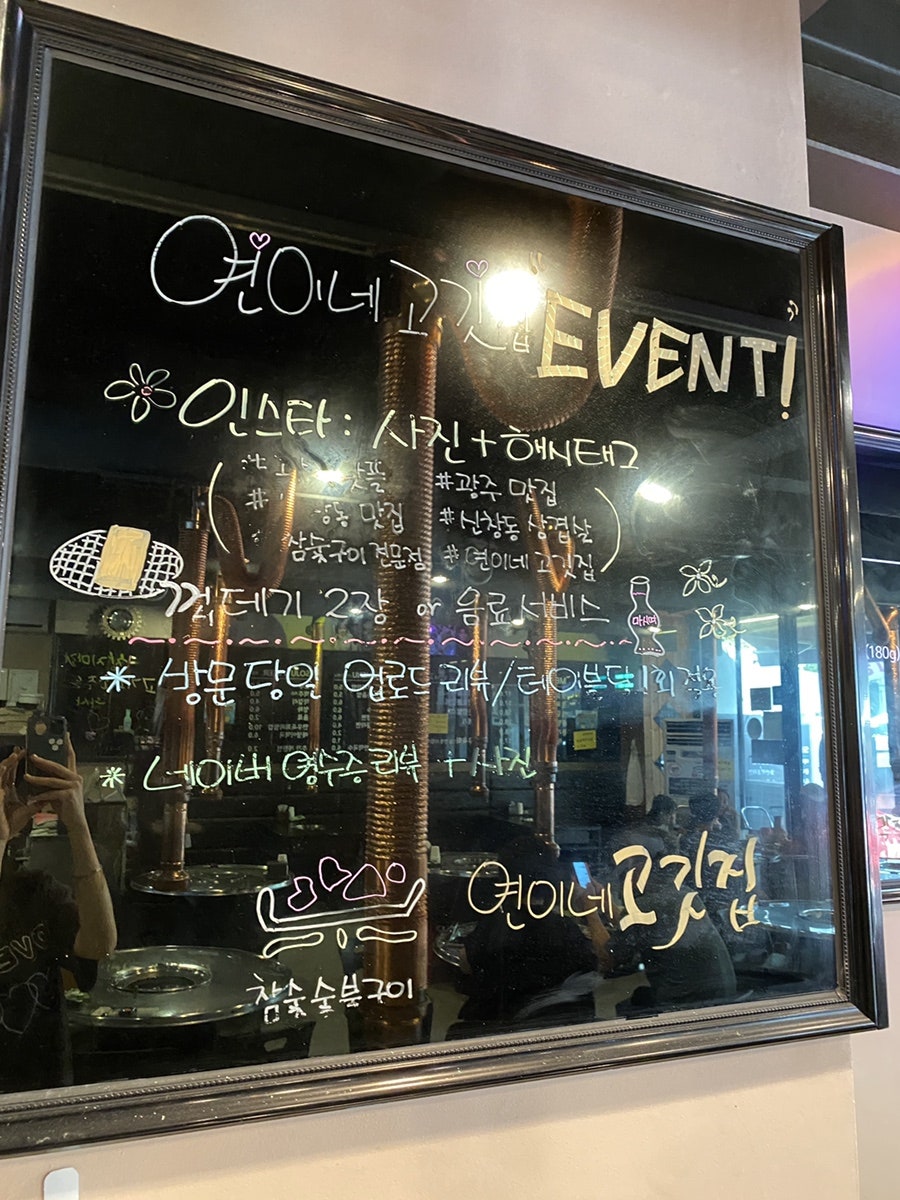 연이네 고깃집 EVENT!
인스타 : 사진 + 해시태그
맛플 #광주 맛집
# 맛집 #신창동 삼겹살
삼숯구이 전문점 # 연이네 고깃집
껍데기 2장 or 음료서비스
마시며
* 방문당일 업로드 리뷰/테이블당 1회 적용
* 네이버 영수증 리뷰 + 사진
연이네 고깃집
참숯숯불구이
(180g)